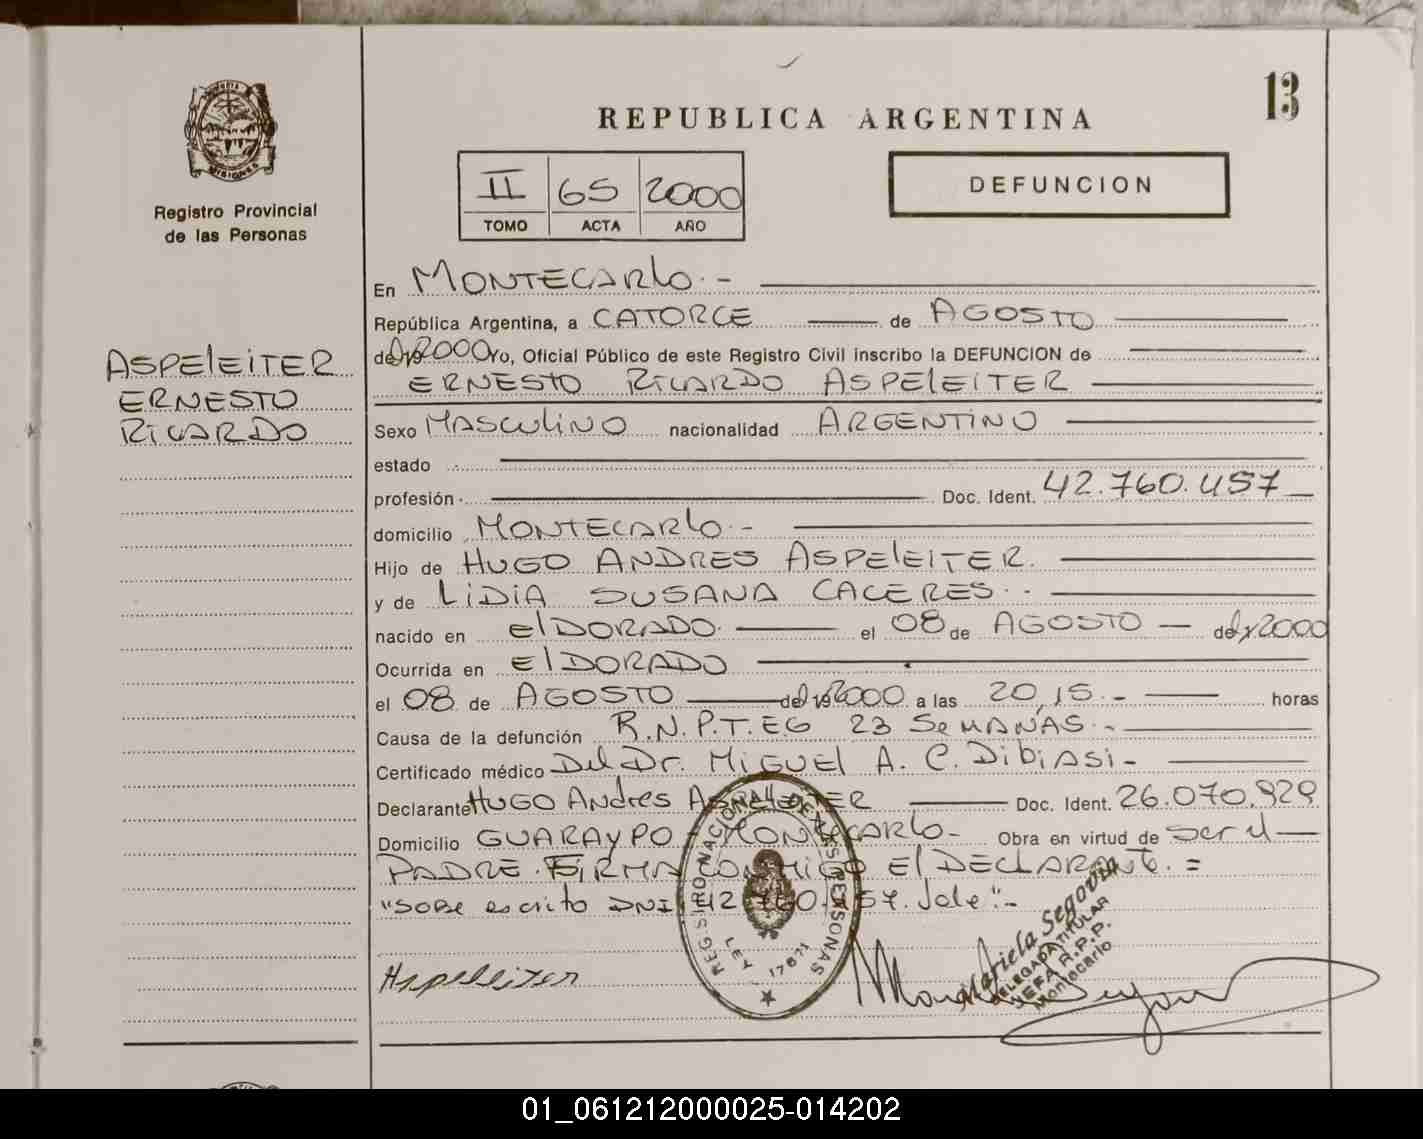 13
REPUBLICA ARGENTINA
MISIONES
Registro Provincial
de las Personas
II 65 2000
TOMO ACTA AÑO
DEFUNCION
ASPELEITER
ERNESTO
RICARDO
En MONTECARLO.-
República Argentina, a CATORCE de AGOSTO
de 2000 Yo, Oficial Público de este Registro Civil inscribo la DEFUNCION de
ERNESTO RICARDO ASPELEITER
Sexo MASCULINO nacionalidad ARGENTINO
estado
profesión Doc. Ident. 42.760.457
domicilio MONTECARLO.-
Hijo de HUGO ANDRES ASPELEITER.
y de LIDIA SUSANA CACERES.
nacido en ELDORADO. el 08 de AGOSTO de 2000
Ocurrida en ELDORADO
el 08 de AGOSTO de 2000 a las 20,15.- horas
Causa de la defunción R.N.P.T.EG 23 SEMANAS.-
Certificado médico Del Dr. MIGUEL A. C. DIBIASI-
Declarante HUGO ANDRES ASPELEITER Doc. Ident. 26.070.929
Domicilio GUARAYPO MONTECARLO- Obra en virtud de Ser el
PADRE. FIRMA CONMIGO EL DECLARANTE.=
"SOBRE escrito DNI 42.760.457. Vale".-
REGISTRO NACIONAL DE LAS PERSONAS
LEY 17671
Aspeleiter
Mariela Segovia
DELEGADA TITULAR
JEFA R.P.P.
Montecarlo
01_061212000025-014202